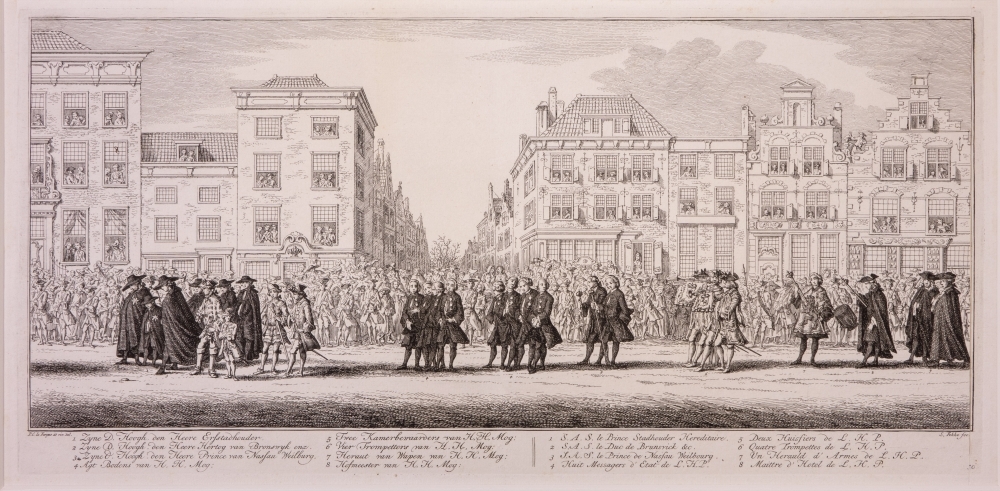 P. C. la Fargue ad viv. del.
S. Fokke fec.
1 Zyne D. Hoogh. den Heere Erfstadhouder.
2 Zyne D. Hoogh. den Heere Hertog van Bronswyk enz.
3 Zyne D. Hoogh. den Heere Prince van Nassau Weilburg.
4 Agt Bodens van H. H. Mog:
5 Twee Kamerbewaarders van H. H. Mog:
6 Vier Trompetters van H. H. Mog:
7 Heraut van Wapen van H. H. Mog:
8 Hofmeester van H. H. Mog:
1 S. A. S. le Prince Stadhouder Hereditaire.
2 S. A. S. le Duc de Brunswick &c.
3 S. A. S. le Prince de Nassau Weilbourg.
4 Huit Messagers d'Etat de L. H. P.
5 Deux Huissiers de L. H. P.
6 Quatre Trompettes de L. H. P.
7 Un Herauld d'Armes de L. H. P.
8 Maittre d'Hotel de L. H. P.